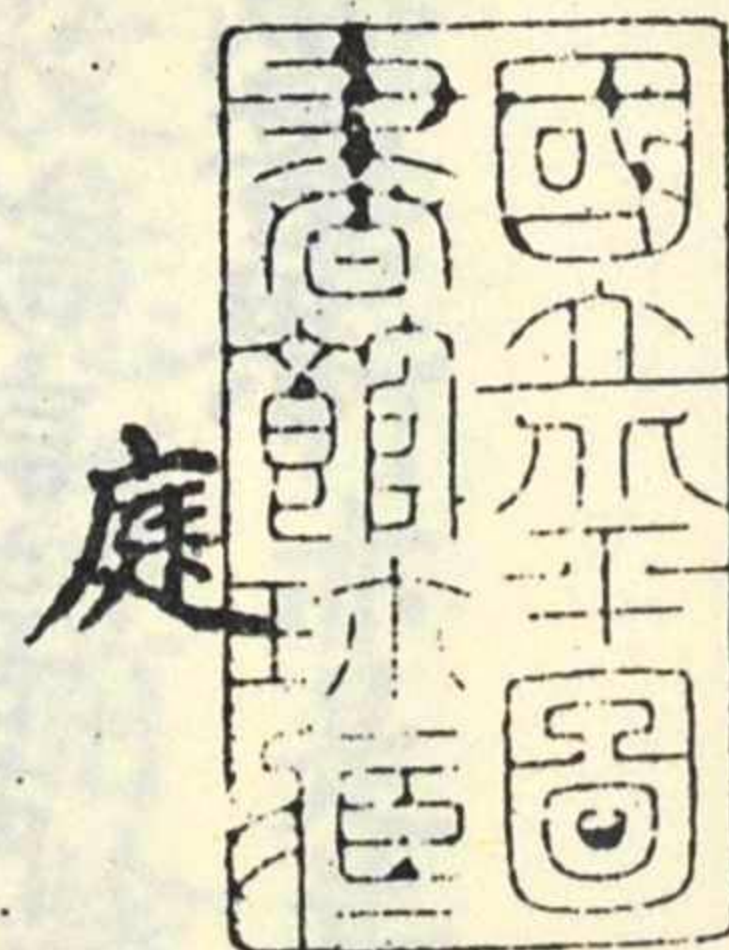 國立北平圖
書館珍藏
庭